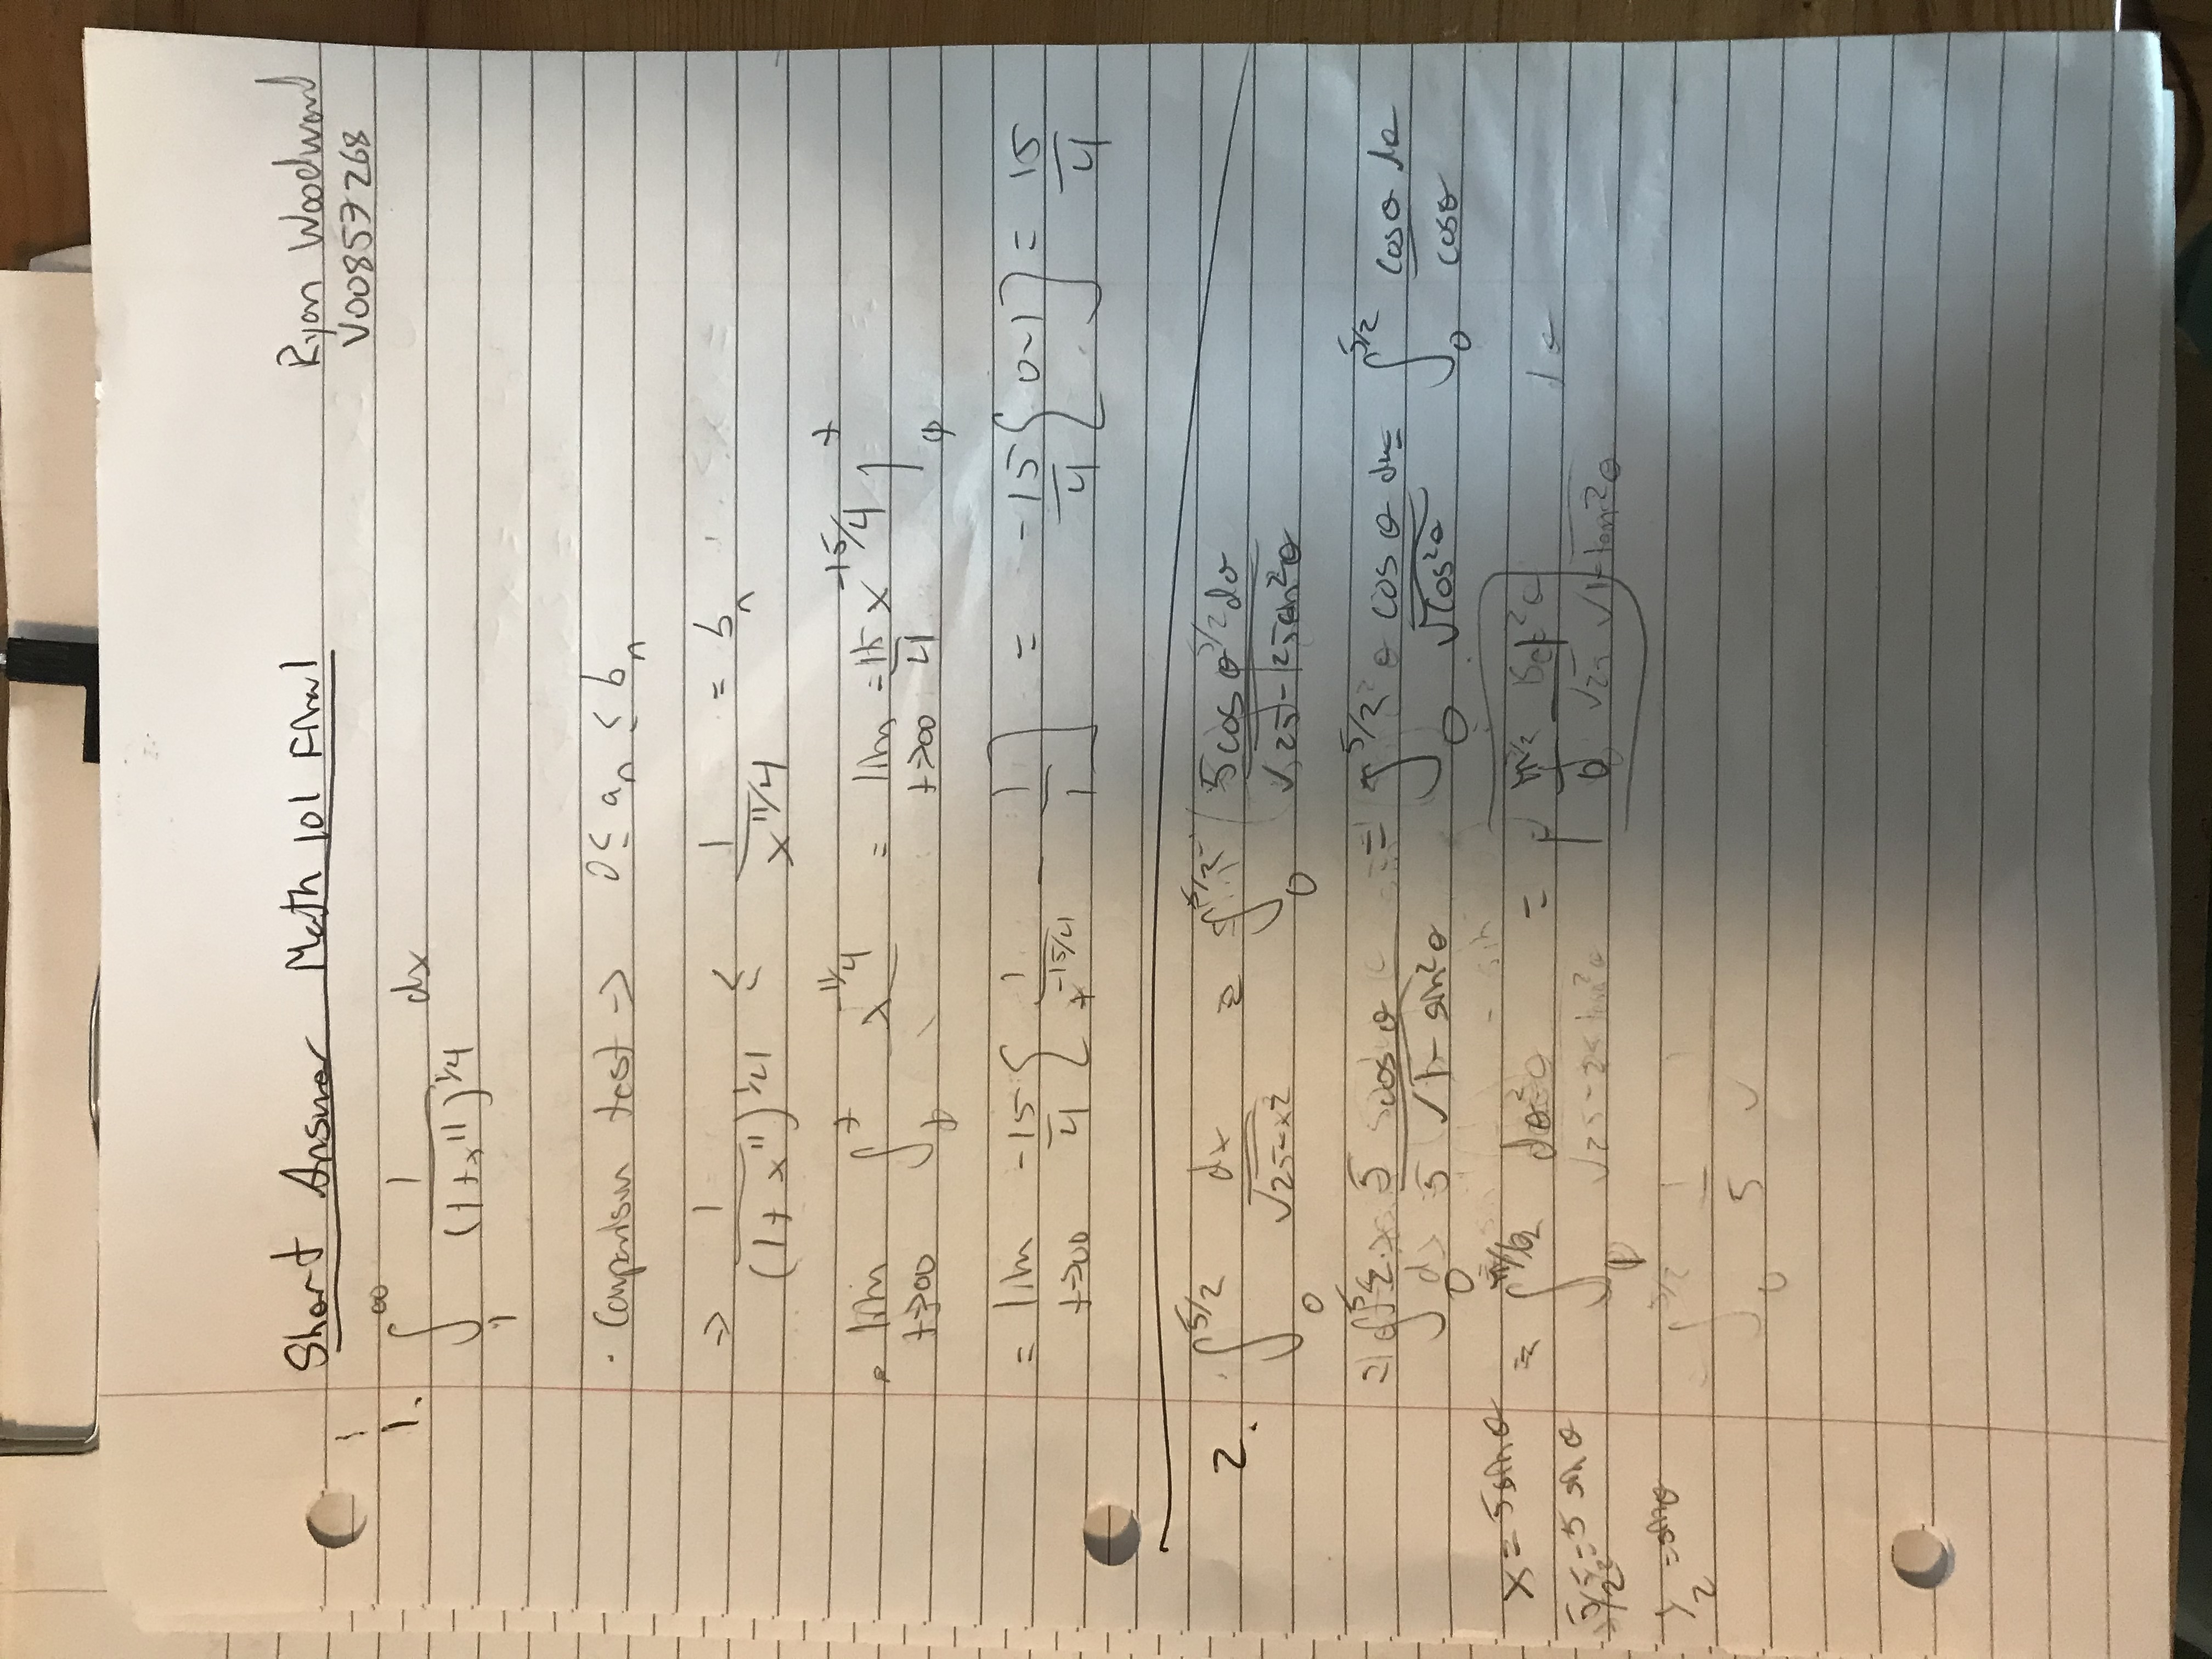 Short Answer Math 101 Final
Ryan Woodward
V00857268
1. ∫₁^∞ 1/(1+x^11)^1/4 dx
· Comparison test -> 0 ≤ a_n ≤ b_n
=> 1/(1+x^11)^1/4 ≤ 1/x^11/4 = b_n
• lim t->∞ ∫₁^t x^-11/4 = lim t->∞ -15/4 x^-15/4 ]₁^t
= lim t->∞ -15/4 [ 1/t^-15/4 - 1/1 ] = -15/4 [ 0-1 ] = 15/4
2. ∫₀^5/2 dx/√25-x² = ∫₀^5/2 5cosθ dθ/√25-25sin²θ
= ∫₀^5/2 5 cosθ/5√1-sin²θ = ∫₀^5/2 cosθ dθ/√cos²θ = ∫₀^5/2 cosθ dθ/cosθ
x = 5sinθ
= ∫₀^π/6 dθ =
5/2 = 5 sinθ
1/2 = sinθ